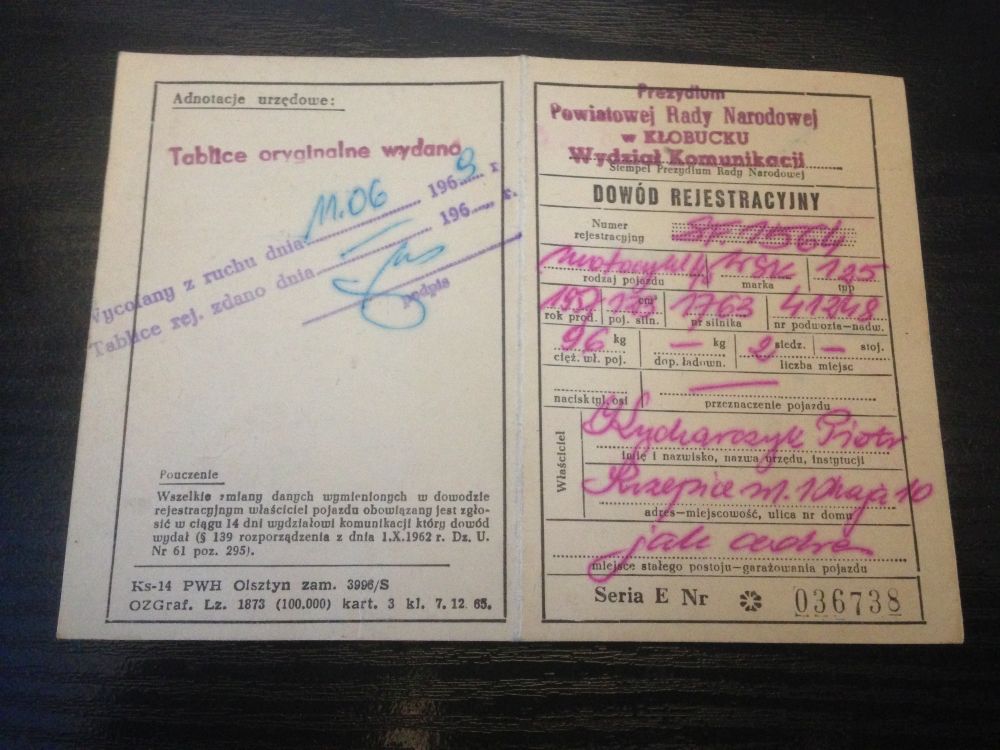 Adnotacje urzędowe:
Tablice oryginalne wydano
Wycofany z ruchu dnia 11.06 1969 r.
Tablice rej. zdano dnia 196 r.
podpis
Pouczenie
Wszelkie zmiany danych wymienionych w dowodzie
rejestracyjnym właściciel pojazdu obowiązany jest zgło-
sić w ciągu 14 dni wydziałowi komunikacji który dowód
wydał (§ 139 rozporządzenia z dnia 1.X.1962 r. Dz. U.
Nr 61 poz. 295).
Ks-14 PWH Olsztyn zam. 3996/S
OZGraf. Lz. 1873 (100.000) kart. 3 kl. 7.12 65.
Prezydium
Powiatowej Rady Narodowej
w KŁOBUCKU
Wydział Komunikacji
Stempel Prezydium Rady Narodowej
DOWÓD REJESTRACYJNY
Numer
rejestracyjny
motocykl WSK 125
rodzaj pojazdu marka typ
1957 123 cm³ 1763 41248
rok prod. poj. siln. nr silnika nr podwozia-nadw.
96 kg — kg 2 siedz. — stoj.
cięż. wł. poj. dop. ładown. liczba miejsc
nacisk tyl. osi przeznaczenie pojazdu
Właściciel
Kucharczyk Piotr
imię i nazwisko, nazwa urzędu, instytucji
Krzepice ul. 1 Maja 10
adres-miejscowość, ulica nr domu
jak adres
miejsce stałego postoju-garażowania pojazdu
Seria E Nr 036738